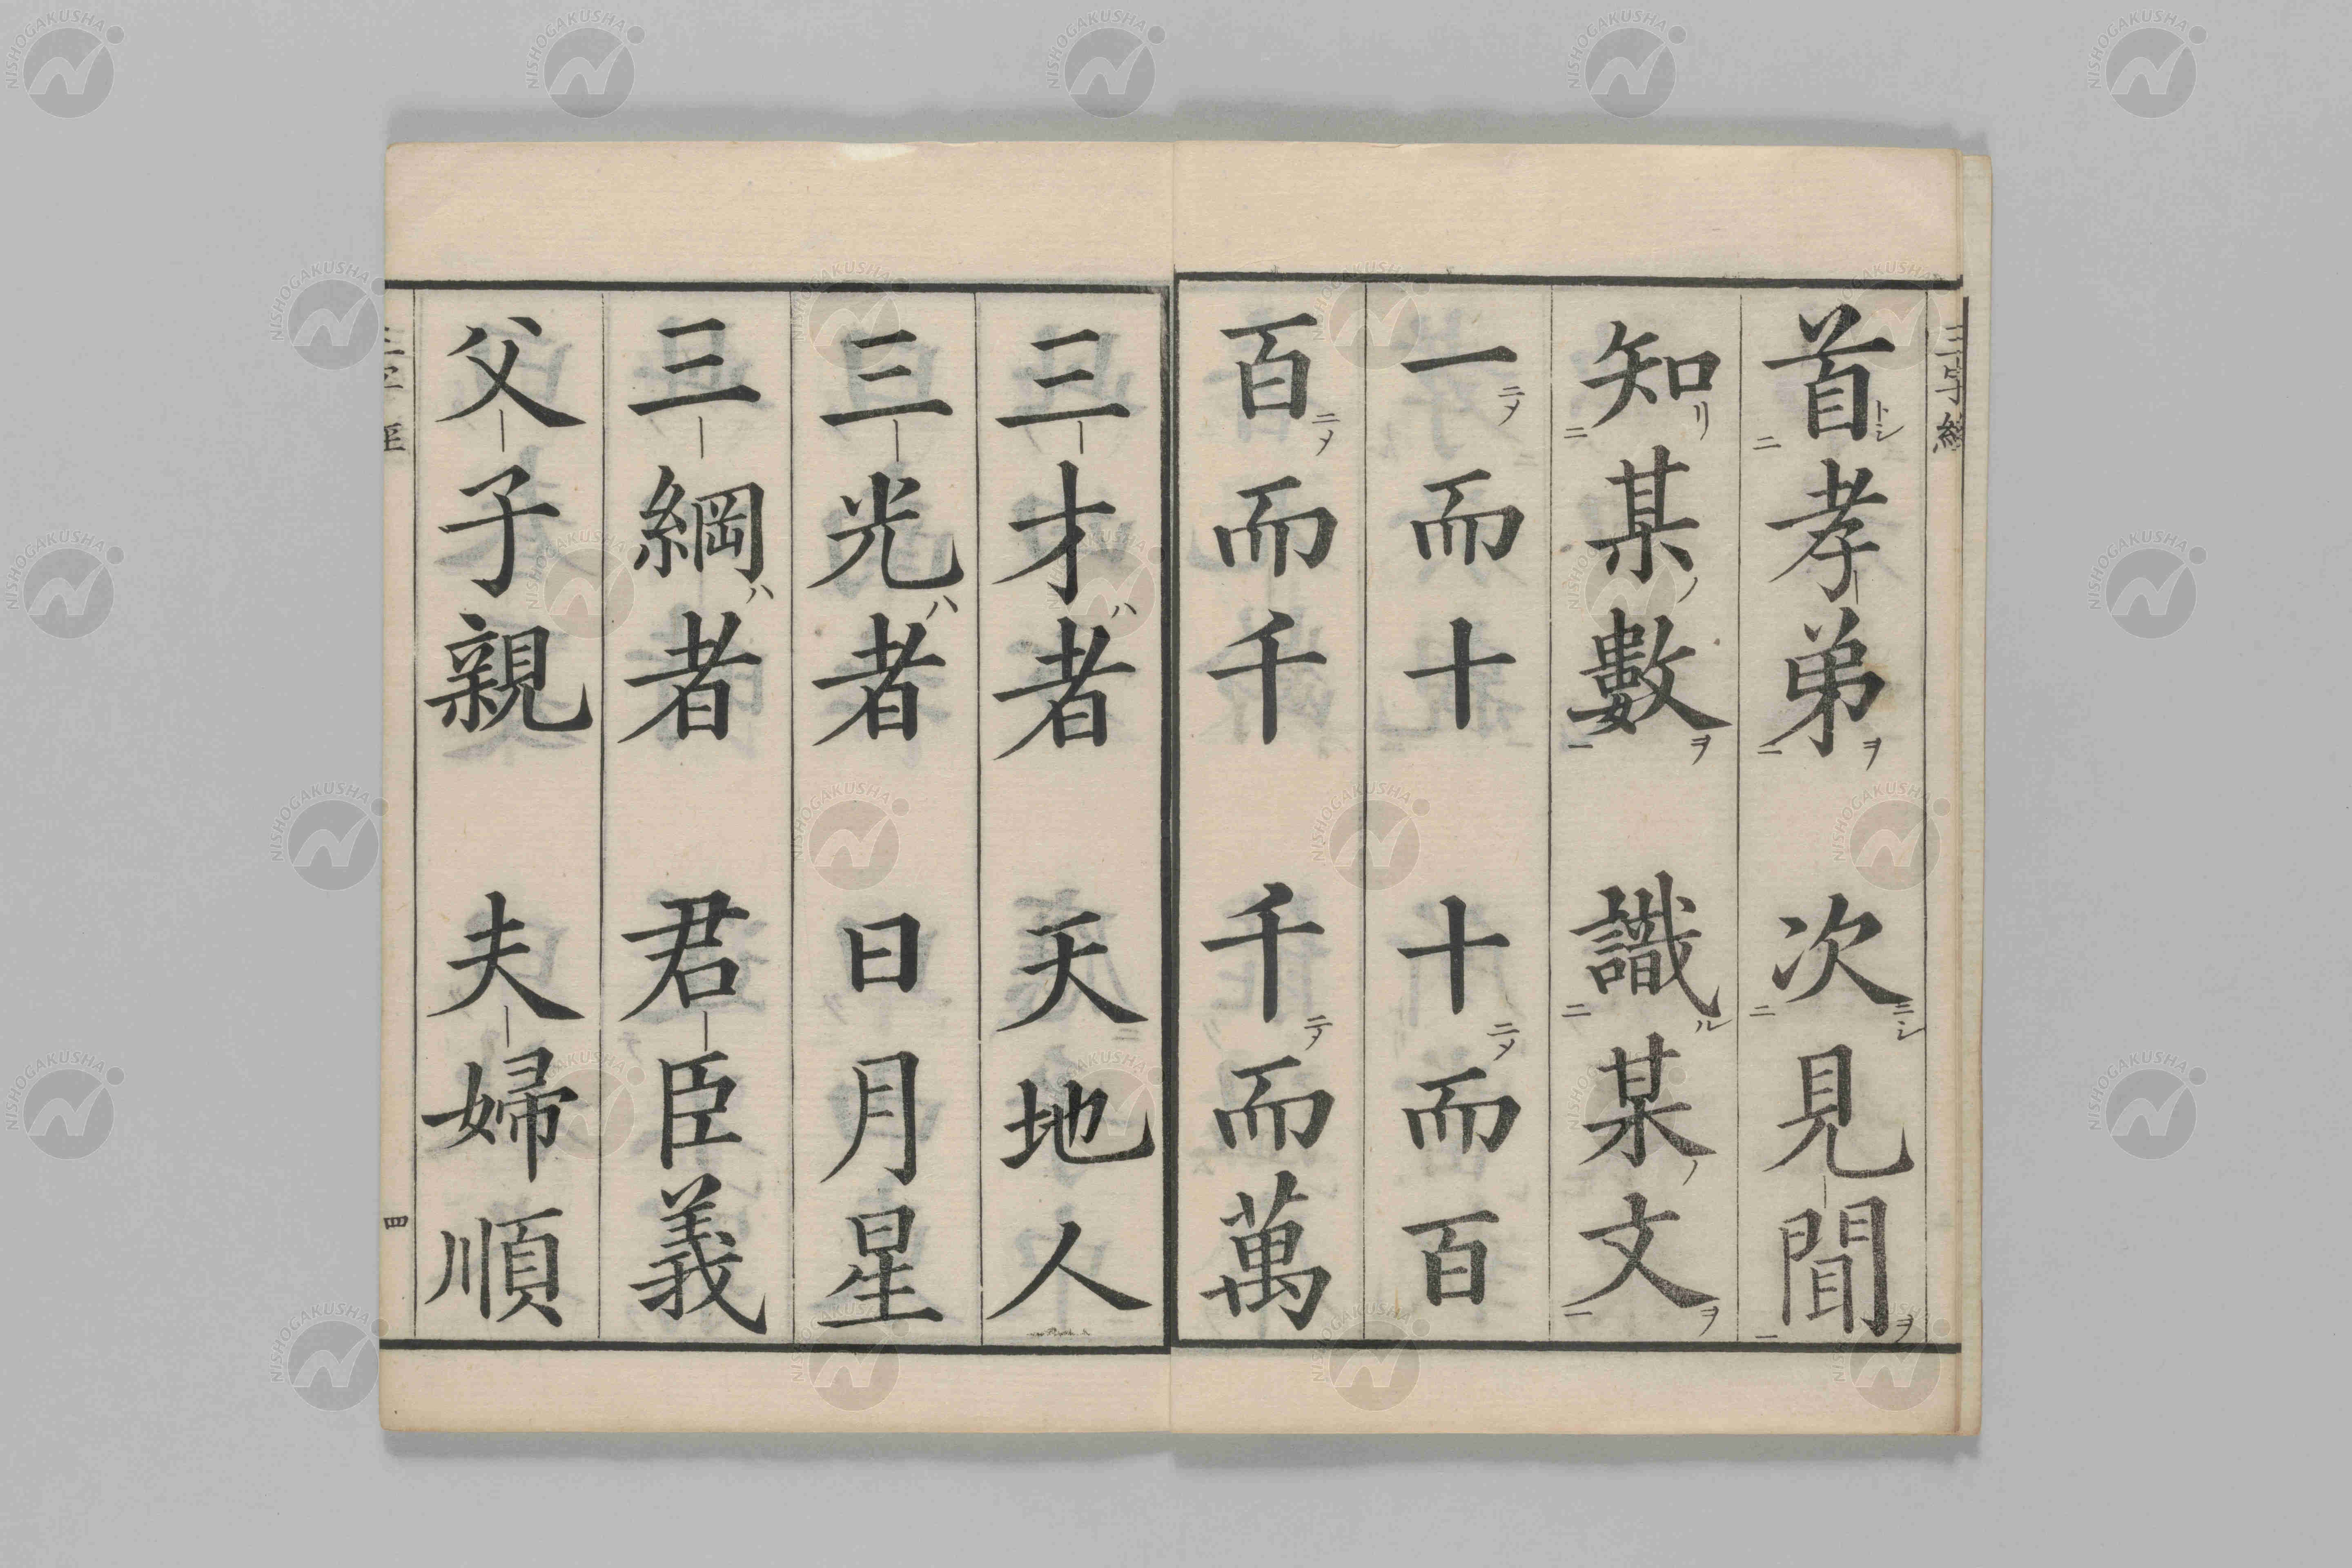 三字經
首孝弟 次見聞
知某數 識某文
一而十 十而百
百而千 千而萬
三才者 天地人
三光者 日月星
三綱者 君臣義
父子親 夫婦順
四
NISHOGAKUSHA